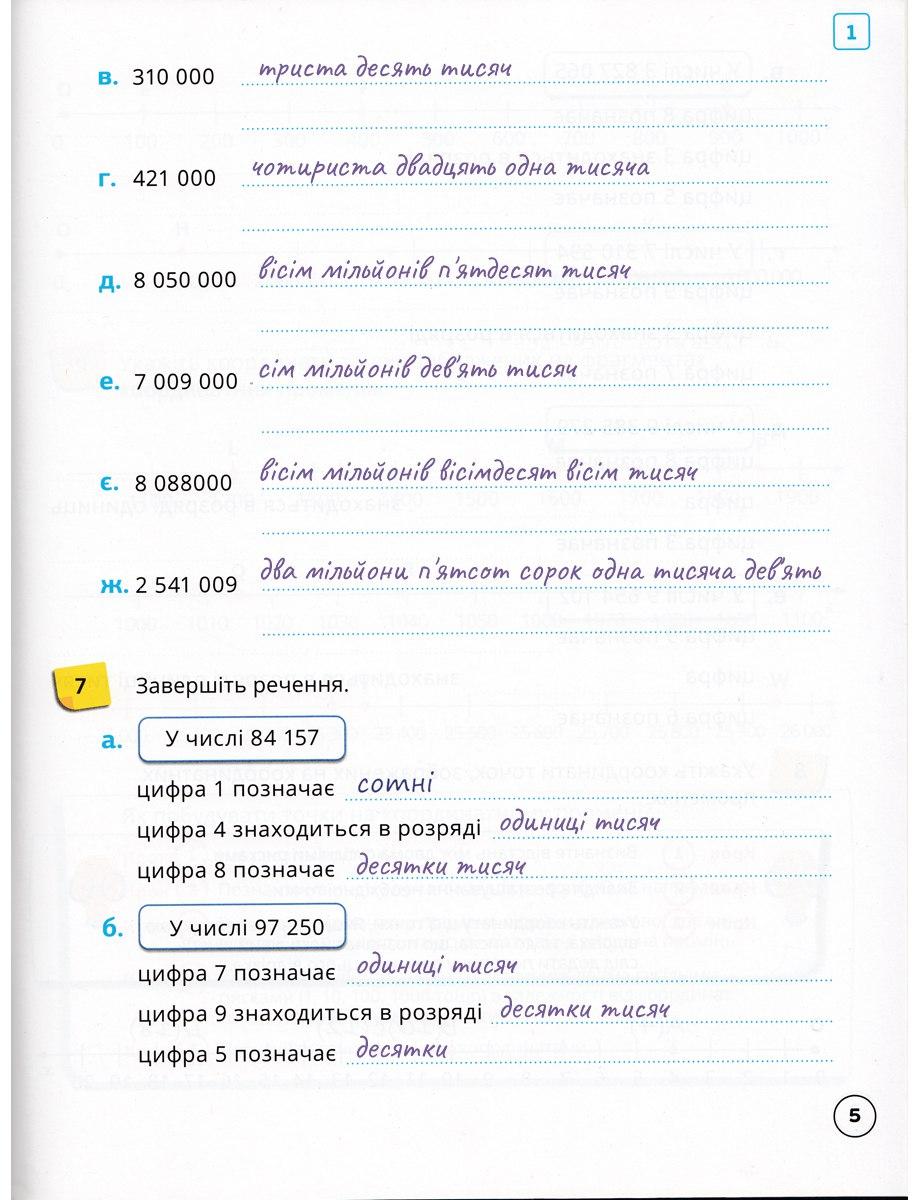 1
в. 310 000 триста десять тисяч
г. 421 000 чотириста двадцять одна тисяча
д. 8 050 000 вісім мільйонів п'ятдесят тисяч
е. 7 009 000 сім мільйонів дев'ять тисяч
є. 8 088000 вісім мільйонів вісімдесят вісім тисяч
ж. 2 541 009 два мільйони п'ятсот сорок одна тисяча дев'ять
7 Завершіть речення.
а. У числі 84 157
цифра 1 позначає сотні
цифра 4 знаходиться в розряді одиниці тисяч
цифра 8 позначає десятки тисяч
б. У числі 97 250
цифра 7 позначає одиниці тисяч
цифра 9 знаходиться в розряді десятки тисяч
цифра 5 позначає десятки
5